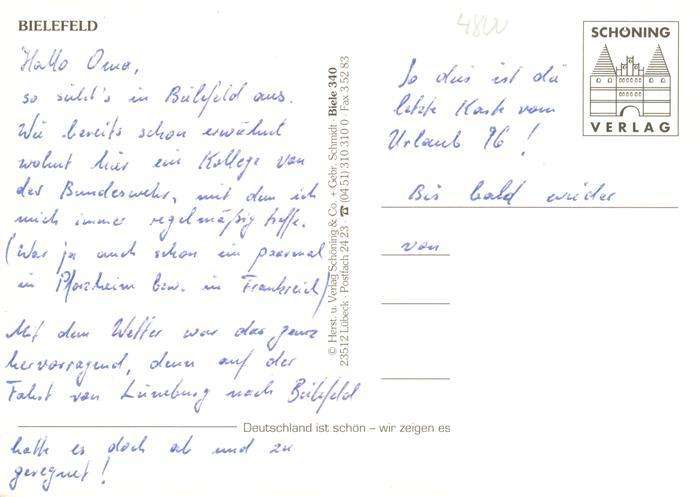 BIELEFELD
Hallo Oma,
so sieht's in Bielefeld aus.
Wie bereits schon erwähnt
wohnt hier ein Kollege von
der Bundeswehr, mit dem ich
mich immer regelmäßig treffe.
(War ja auch schon ein paarmal
in Pforzheim bzw. in Frankreich)
Mit dem Wetter war das ganz
hervorragend, denn auf der
Fahrt von Lüneburg nach Bielefeld
hatte es doch ab und zu
geregnet!
Deutschland ist schön – wir zeigen es
© Herst. u. Verlag Schöning & Co. + Gebr. Schmidt · Biele 340
23512 Lübeck · Postfach 24 23 · ☎ (04 51) 310 310 0 · Fax 3 52 83
4800
So dies ist die
letzte Karte vom
Urlaub 96!
Bis bald wieder
von
SCHÖNING
VERLAG